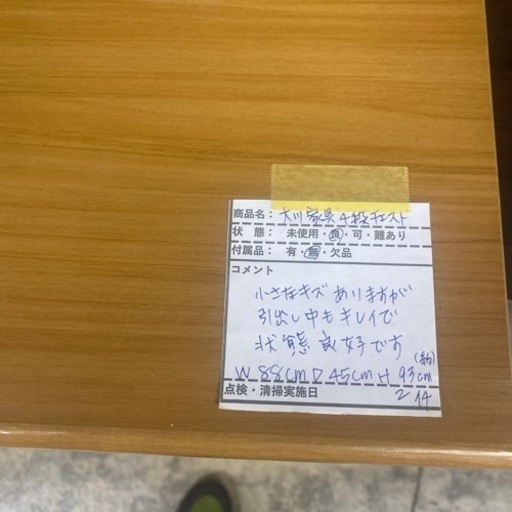 商品名： 大川家具4段チェスト
状　態： 未使用・良・可・難あり
付属品： 有・無・欠品
コメント
小さなキズありますが
引出し中もキレイで
状態良好です
W 88cm D 45cm H 93cm (約)
点検・清掃実施日 2 14